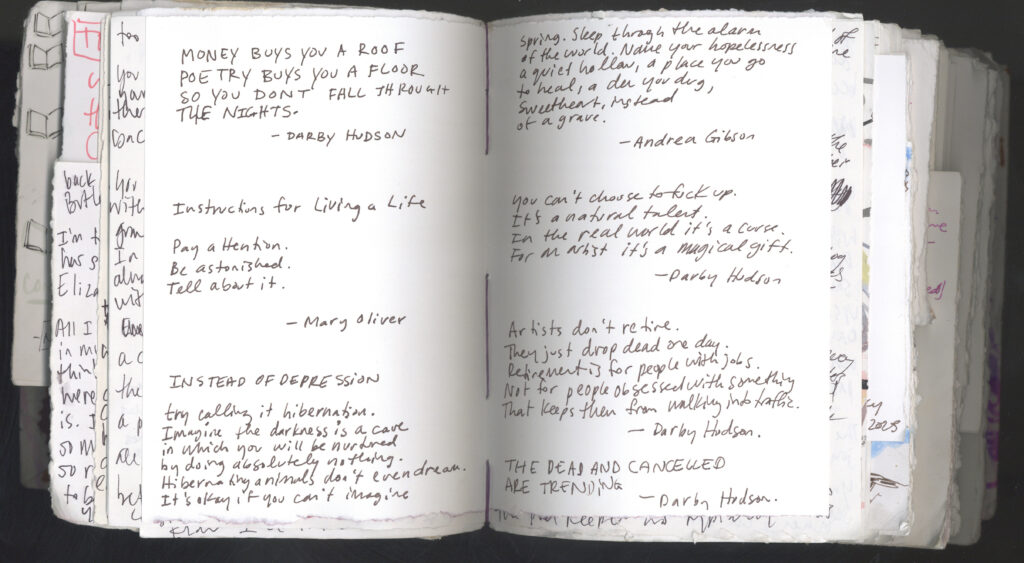 MONEY BUYS YOU A ROOF
POETRY BUYS YOU A FLOOR
SO YOU DON'T FALL THROUGH
THE NIGHTS.
— DARBY HUDSON
Instructions for Living a Life
Pay attention.
Be astonished.
Tell about it.
— Mary Oliver
INSTEAD OF DEPRESSION
try calling it hibernation.
Imagine the darkness is a cave
in which you will be nurtured
by doing absolutely nothing.
Hibernating animals don't even dream.
It's okay if you can't imagine
Spring. Sleep through the alarm
of the world. Name your hopelessness
a quiet hollow, a place you go
to heal, a den you dug,
Sweetheart, instead
of a grave.
— Andrea Gibson
You can't choose to fuck up.
It's a natural talent.
In the real world it's a curse.
For an artist it's a magical gift.
— Darby Hudson
Artists don't retire.
They just drop dead one day.
Retirement is for people with jobs.
Not for people obsessed with something
That keeps them from walking into traffic.
— Darby Hudson.
THE DEAD AND CANCELLED
ARE TRENDING
— Darby Hudson.
too
you
back
I'm t
has s
Eliza
All I
in my
think
here
is. I
so m
to b
You
with
In
a c
the
a p
2023